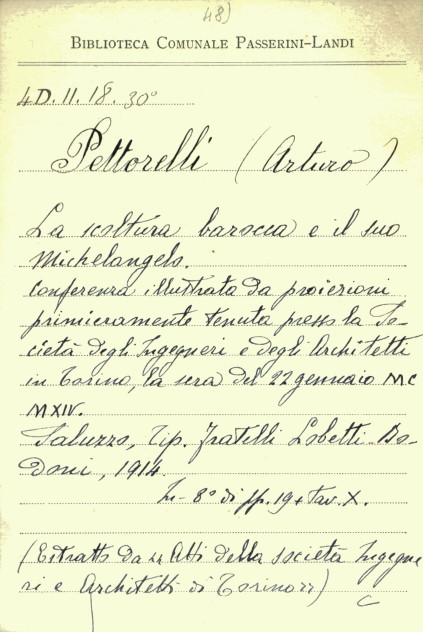 48)
BIBLIOTECA COMUNALE PASSERINI-LANDI
4D.II.18.30°
Pettorelli (Arturo)
La scoltura barocca e il suo
Michelangelo.
Conferenza illustrata da proiezioni
primieramente tenuta presso la So-
cietà degli Ingegneri e degli Architetti
in Torino, la sera del 22 gennaio MC
MXIV.
Saluzzo, Tip. Fratelli Lobetti-Bo-
doni, 1914.
In-8° di pp. 19+Tav. X.
(Estratto da "Atti della società Ingegne
ri e Architetti di Torino")
C